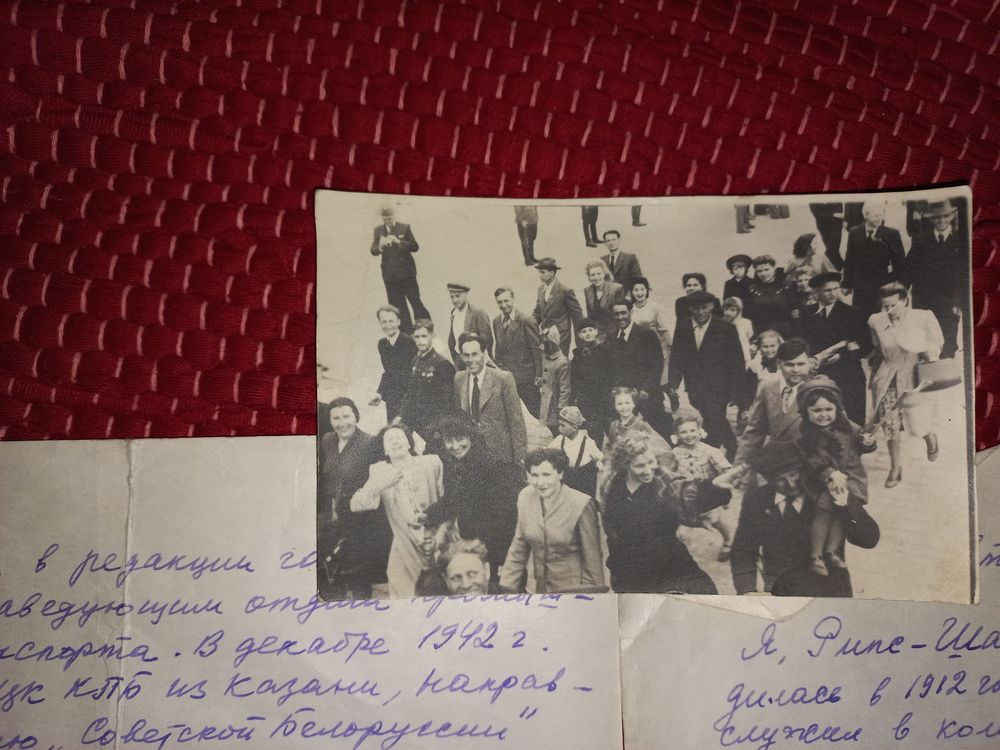 в редакции го
аведующим отдела промыш-
нспорта. В декабре 1942 г.
цк КПБ из Казани, направ-
ию „Советской Белоруссии"
Я, Рипс-Ша
дилась в 1912 го
служил в ком